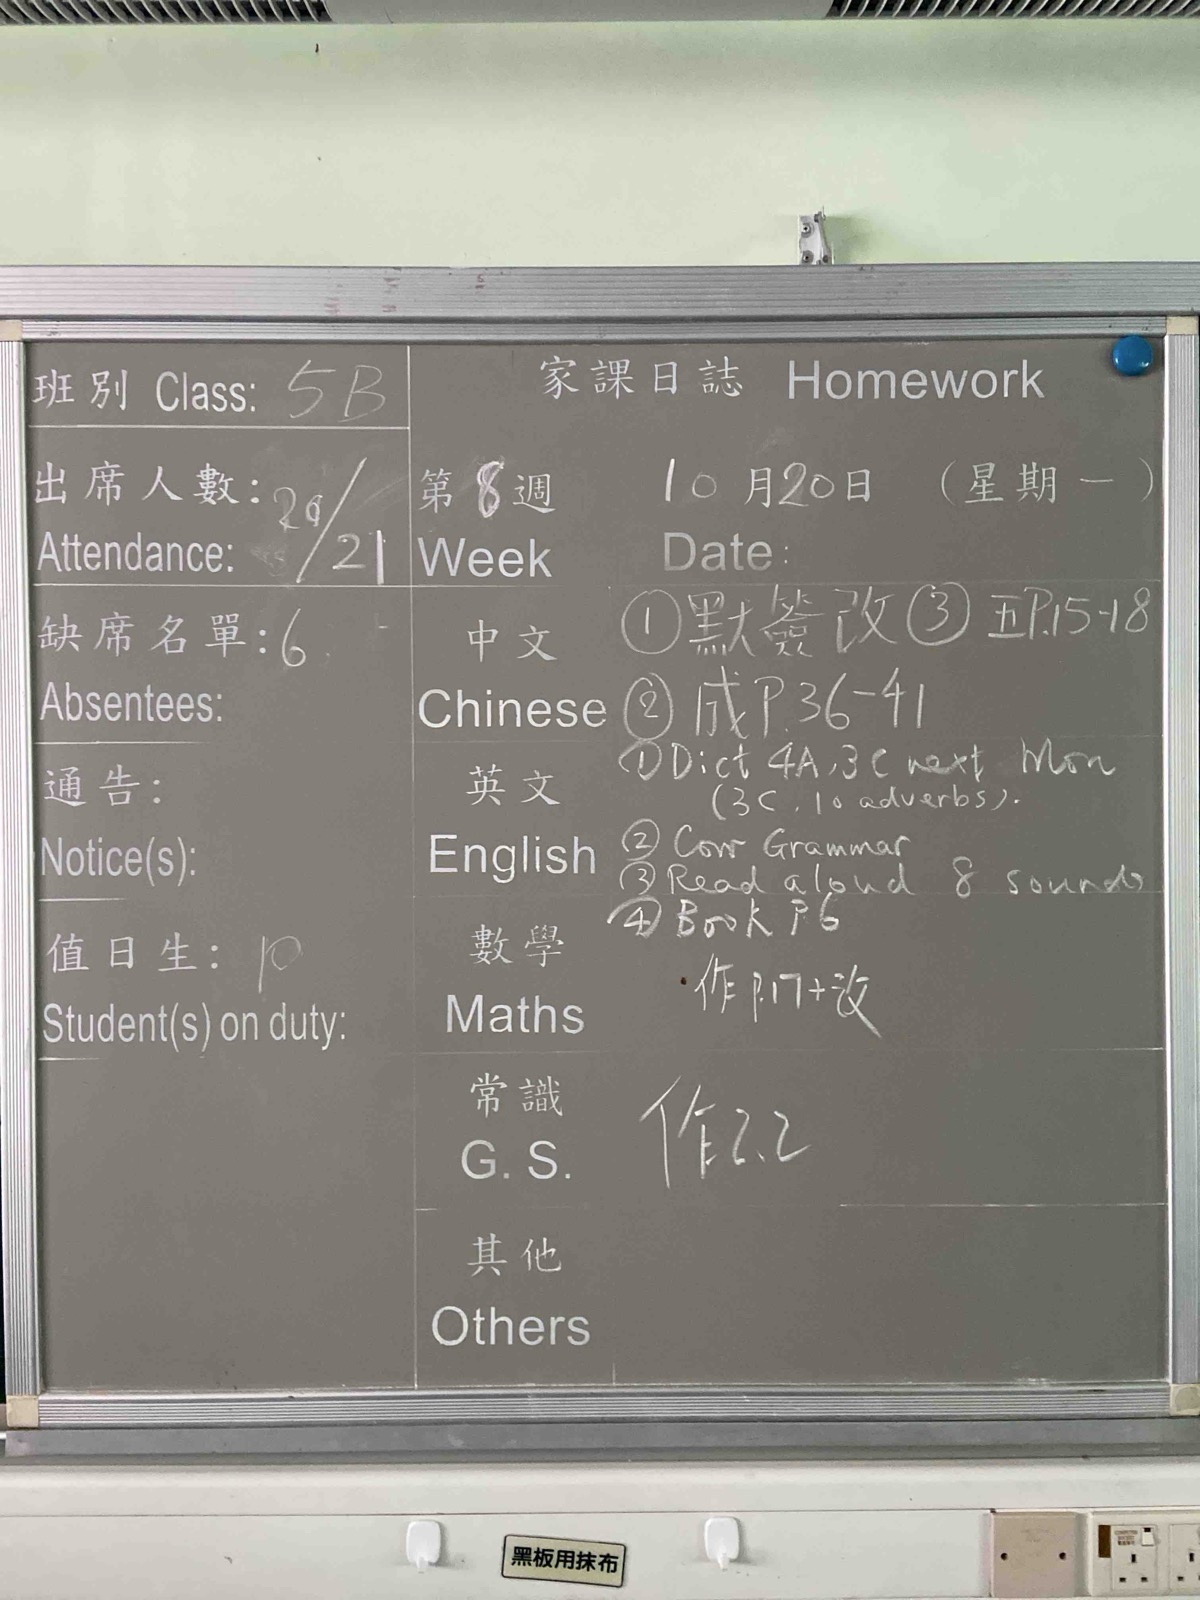 班別 Class: 5B
出席人數: 20/21
Attendance:
缺席名單: 6
Absentees:
通告:
Notice(s):
值日生: p
Student(s) on duty:
家課日誌 Homework
第8週 10月20日 (星期一)
Week Date:
中文 ①默簽改 ③五P.15-18
Chinese ②成P.36-41
英文 ①Dict 4A, 3C next Mon
(3C, 10 adverbs).
English ②Corr Grammar
③Read aloud 8 sounds
④Book P6
數學
Maths 作p.17+改
常識
G. S. 作2.2
其他
Others
黑板用抹布